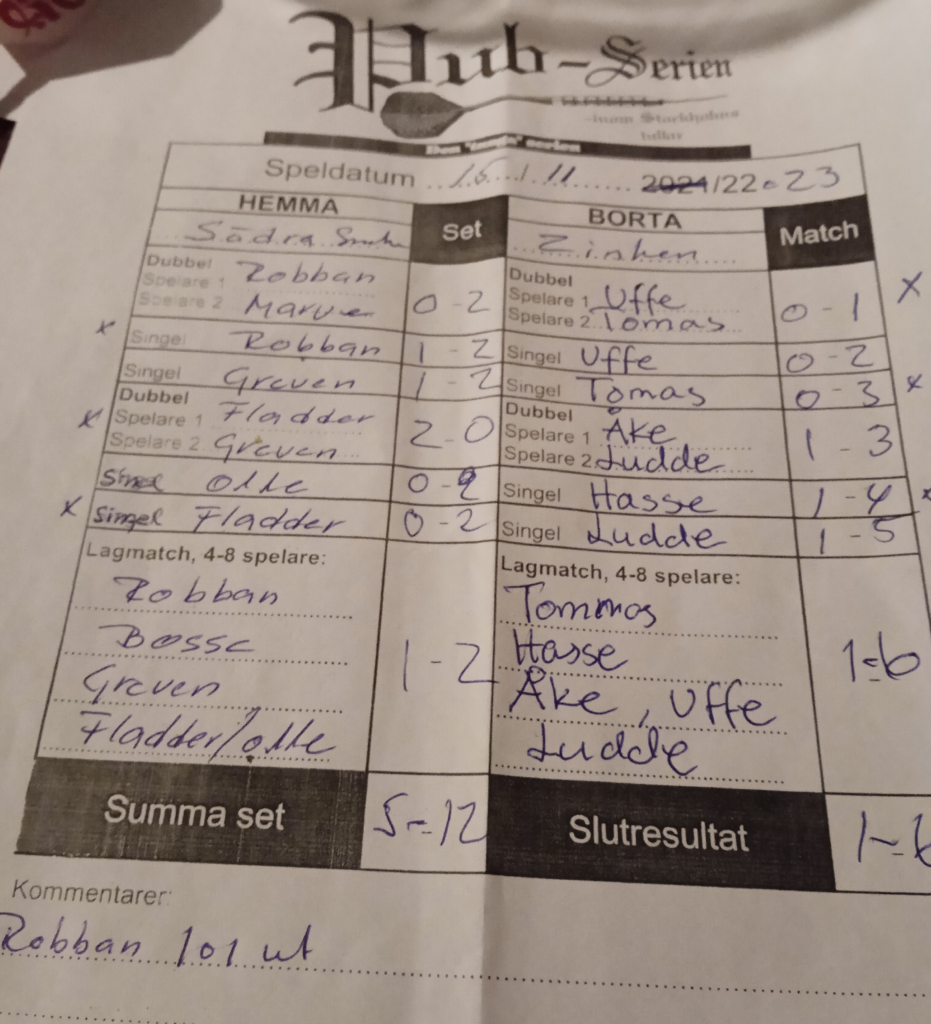 Pub-Serien
-inom Stockholms
Speldatum 16/11 2021/22-23
HEMMA Set BORTA Match
Södra Zinken
Dubbel
Spelare 1 Robban
Spelare 2 0-2
Dubbel
Spelare 1 Uffe
Spelare 2 Tomas 0-1 x
x Singel Robban 1-2 Singel Uffe 0-2
Singel Greven 1-2 Singel Tomas 0-3 x
x Dubbel
Spelare 1 Fladder
Spelare 2 Greven 2-0
Dubbel
Spelare 1 Åke
Spelare 2 Ludde 1-3
Olle 0-2 Singel Hasse 1-4 x
x Singel Fladder 0-2 Singel Ludde 1-5
Lagmatch, 4-8 spelare:
Robban
Bosse
Greven
Fladder/olle
1-2
Lagmatch, 4-8 spelare:
Tommos
Hasse
Åke, Uffe
Ludde
1-6
Summa set 5-12 Slutresultat 1-6
Kommentarer:
Robban 101 ut